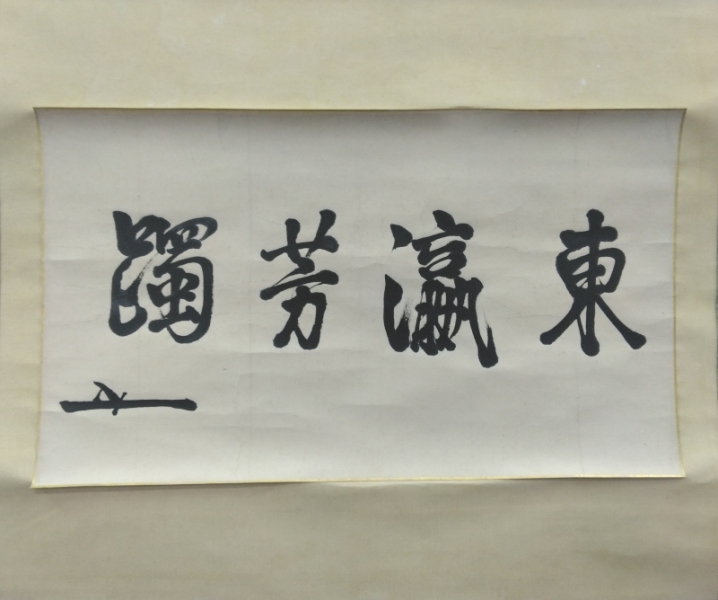 東瀛芳躅